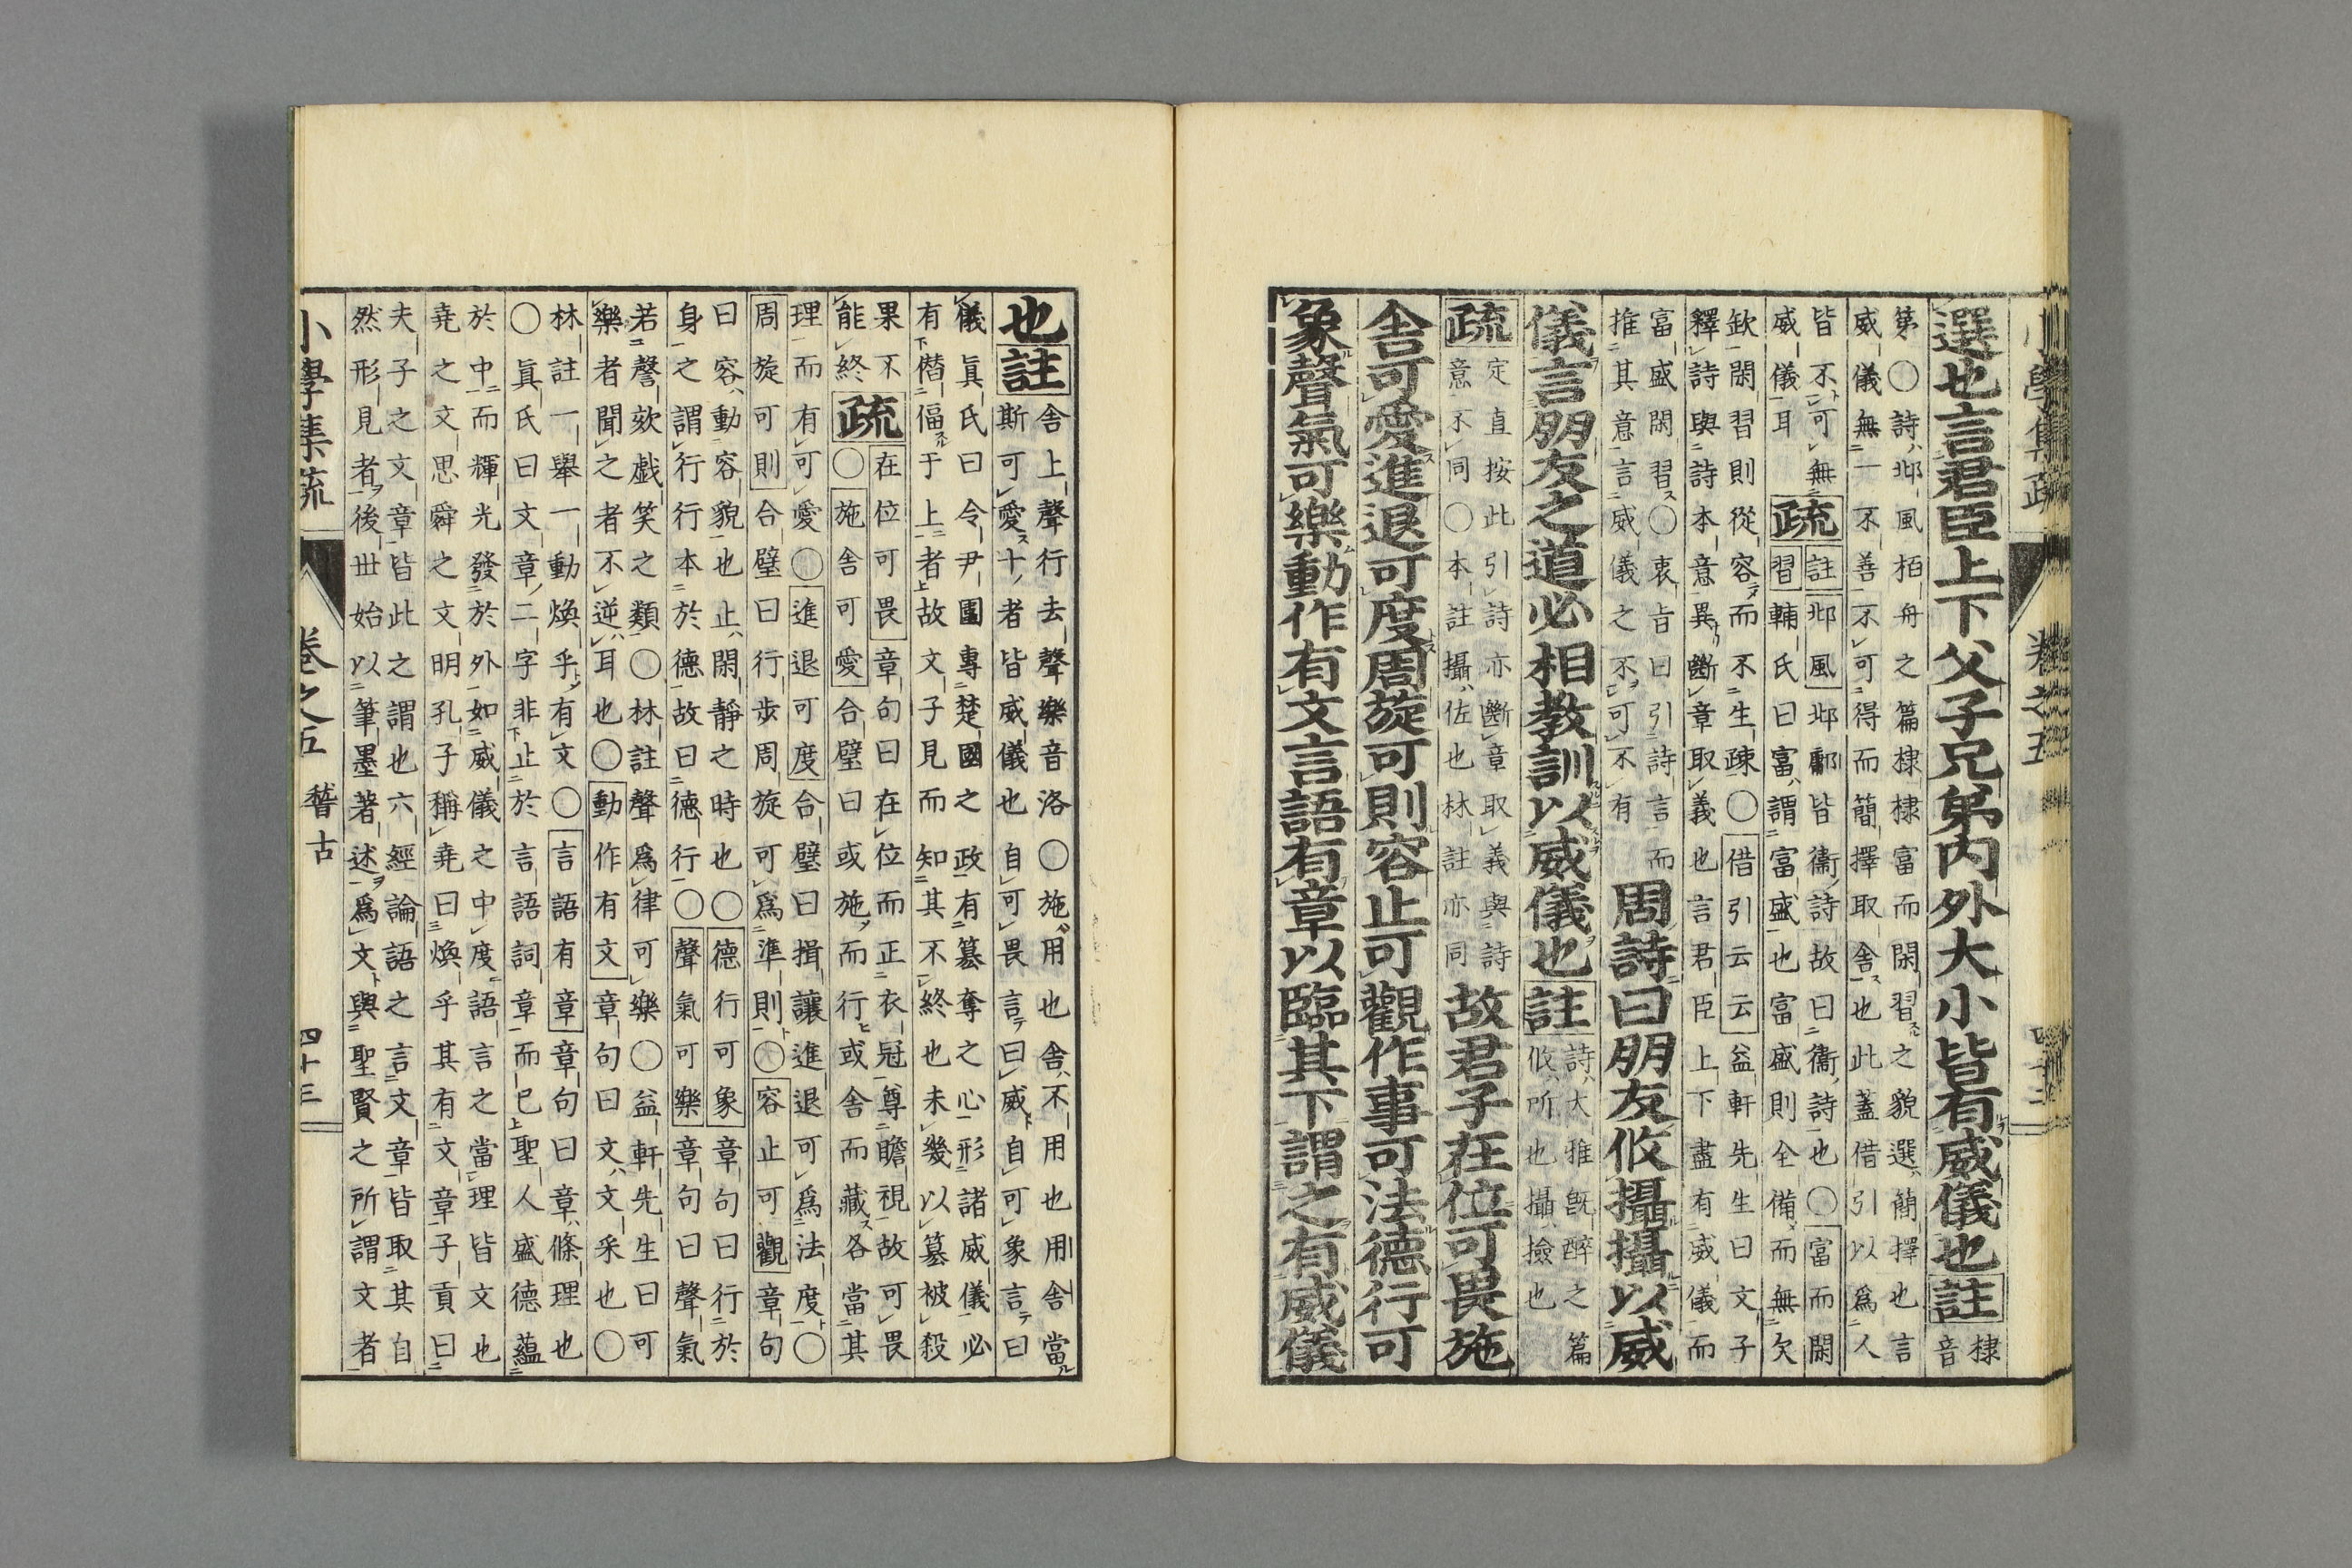 選也言君臣上下父子兄弟内外大小皆有威儀也註棣音
第〇詩邶風栢舟之篇棣棣富而閑習之貌選簡擇也言
威儀無一不善不可得而簡擇取舍也此蓋借引以爲人
皆不可無
威儀耳
疏
註邶風邶鄘皆衞詩故曰衞詩也〇富而閑
習輔氏曰富謂富盛也富盛則全備而無欠
欽閑習則從容而不生疎〇借引云云益軒先生曰文子
釋詩與詩本意異斷章取義也言君臣上下盡有威儀而
富盛閑習〇衷旨曰引詩言而
推其意言威儀之不可不有
周詩曰朋友攸攝攝以威
儀言朋友之道必相敎訓以威儀也註
詩大雅旣醉之篇
攸所也攝撿也
疏
定直按此引詩亦斷章取義與詩
意不同〇本註攝佐也林註亦同
故君子在位可畏施
舍可愛進退可度周旋可則容止可觀作事可法德行可
象聲氣可樂動作有文言語有章以臨其下謂之有威儀
也註
舍上聲行去聲樂音洛〇施用也舍不用也用舍當
斯可愛十者皆威儀也自可畏言曰威自可象言曰
儀眞氏曰令尹圍專楚國之政有簒奪之心形諸威儀必
有僭偪于上者故文子見而知其不終也未幾以簒被殺
果不
能終
疏
在位可畏章句曰在位而正衣冠尊瞻視故可畏
〇施舍可愛合璧曰或施而行或舍而藏各當其
理而有可愛〇進退可度合璧曰揖讓進退可爲法度〇
周旋可則合璧曰行步周旋可爲準則〇容止可觀章句
曰容動容貌也止閑靜之時也〇德行可象章句曰行於
身之謂行行本於德故曰德行〇聲氣可樂章句曰聲氣
若謦欬戯笑之類〇林註聲爲律可樂〇益軒先生曰可
樂者聞之者不逆耳也〇動作有文章句曰文文采也〇
林註一舉一動煥乎有文〇言語有章章句曰章條理也
〇眞氏曰文章二字非止於言語詞章而已聖人盛德蘊
於中而輝光發於外如威儀之中度語言之當理皆文也
堯之文思舜之文明孔子稱堯曰煥乎其有文章子貢曰
夫子之文章皆此之謂也六經論語之言文章皆取其自
然形見者後丗始以筆墨著述爲文與聖賢之所謂文者
小學集疏 卷之五 稽古 四十三